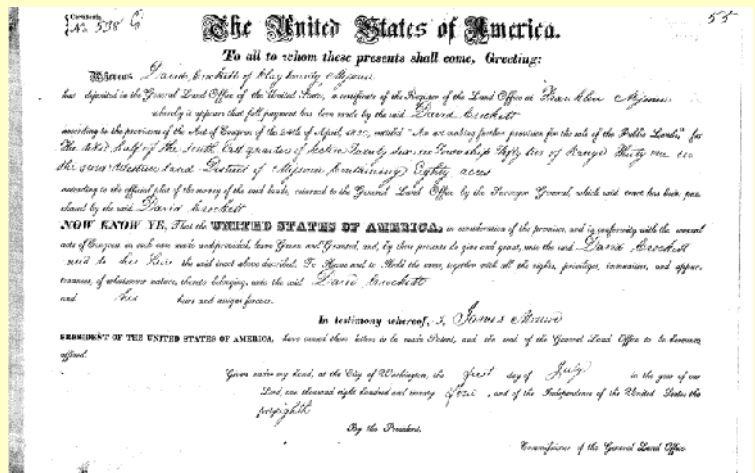 Certificate
No. 538
55
The United States of America.
To all to whom these presents shall come, Greeting:
Whereas David Crockett of Clay County Missouri
has deposited in the General Land Office of the United States, a certificate of the Register of the Land Office at Franklin Missouri
whereby it appears that full payment has been made by the said David Crockett
according to the provisions of the Act of Congress of the 24th of April, 1820, entitled "An act making further provision for the sale of the Public Lands," for
The West half of the South East quarter of Section Twenty six in Township fifty two of Range Thirty one in
the Land District of Missouri Containing Eighty acres
according to the official plat of the survey of the said lands, returned to the General Land Office by the Surveyor General, which said tract has been pur-
chased by the said David Crockett
NOW KNOW YE, That the UNITED STATES OF AMERICA, in consideration of the premises, and in conformity with the several
acts of Congress in such case made and provided, have Given and Granted, and, by these presents do give and grant, unto the said David Crockett
and to his Heirs the said tract above described. To Have and to Hold the same, together with all the rights, privileges, immunities, and appur-
tenances, of whatsoever nature, thereto belonging, unto the said David Crockett
and his heirs and assigns forever.
In testimony whereof, I, James Monroe
PRESIDENT OF THE UNITED STATES OF AMERICA, have caused these letters to be made Patent, and the seal of the General Land Office to be hereunto
affixed.
Given under my hand, at the City of Washington, the first day of July in the year of our
Lord, one thousand eight hundred and twenty four, and of the Independence of the United States the
forty eighth
By the President.
Commissioner of the General Land Office.